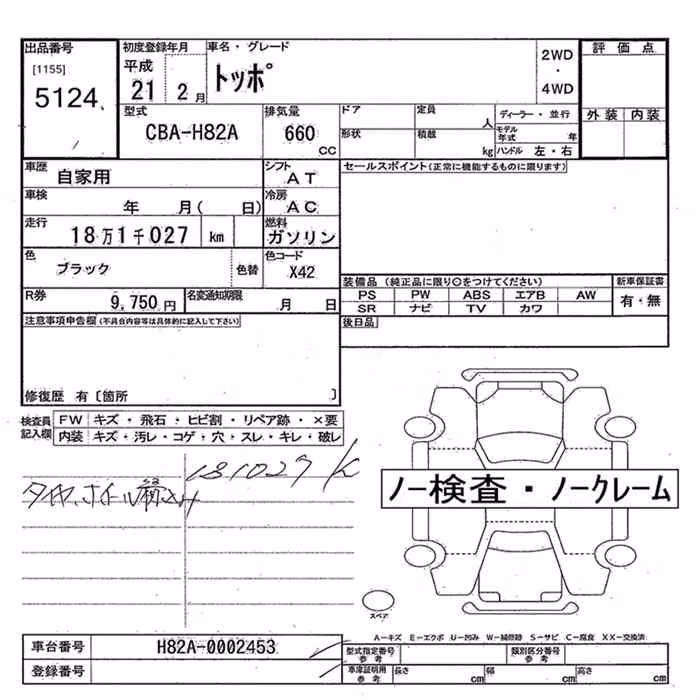 出品番号
[1155]
5124
初度登録年月
平成
21 2 月
車名・グレード
トッポ
2WD
・
4WD
評価点
外装 内装
型式
CBA-H82A
排気量
660
CC
ドア
形状
定員
人
積載
kg
ディーラー・並行
モデル年式 年
ハンドル 左・右
車歴
自家用
シフト
AT
車検
年 月( 日)
冷房
AC
走行
18万1千027 km
燃料
ガソリン
色
ブラック
色替
色コード
X42
R券
9,750円
名変通知期限
月 日
セールスポイント(正常に機能するものに限ります)
装備品 (純正品に限り○をつけてください)
PS PW ABS エアB AW
SR ナビ TV カワ
新車保証書
有・無
後日品
注意事項申告欄(不具合内容等は具体的に記入して下さい)
修復歴 有〔箇所 〕
検査員記入欄
FW キズ・飛石・ヒビ割・リペア跡・×要
内装 キズ・汚レ・コゲ・穴・スレ・キレ・破レ
181027K
タイヤ、ホイール
ノー検査・ノークレーム
スペア
A－キズ E－エクボ U－凹み W－補修跡 S－サビ C－腐食 XX－交換済
車台番号 H82A-0002453
登録番号
型式指定番号 参考
類別区分番号 参考
車庫証明用 参考
長さ cm 幅 cm 高さ cm